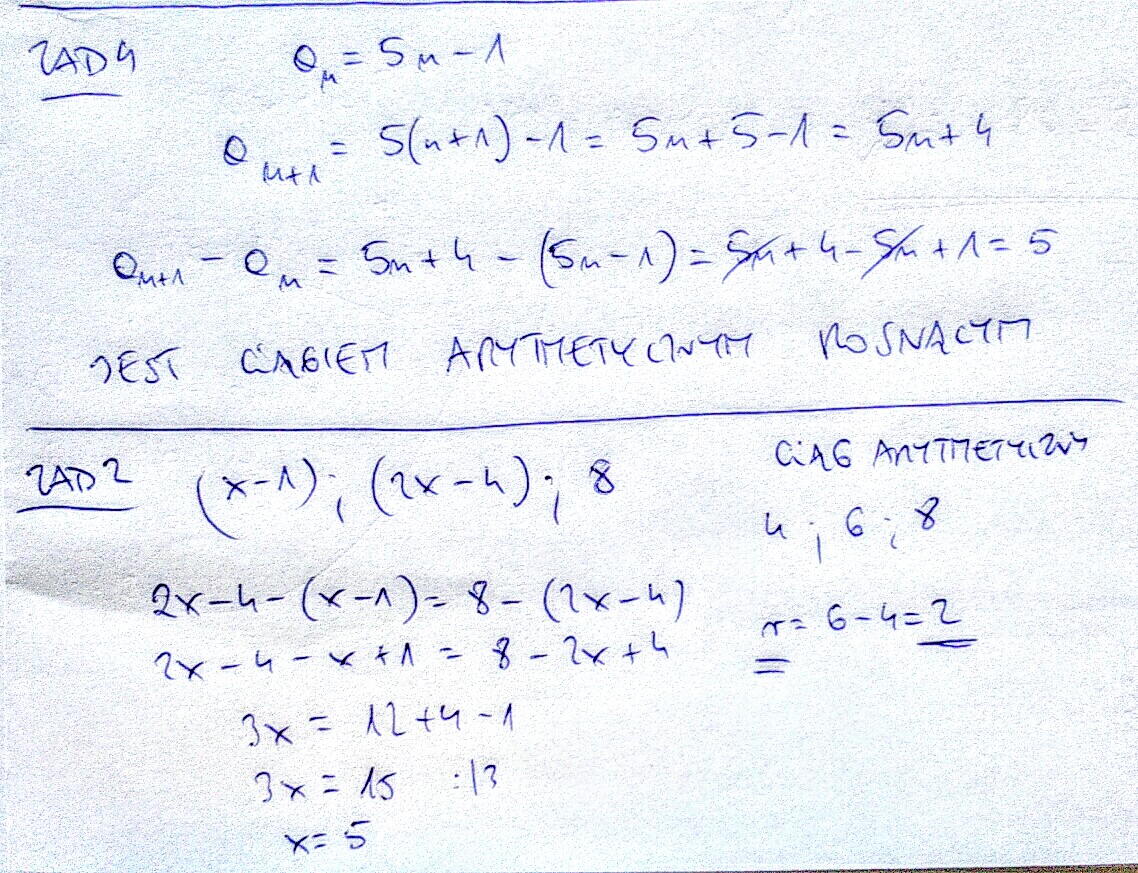 ZAD 4 a_n = 5n - 1
a_{n+1} = 5(n+1) - 1 = 5n + 5 - 1 = 5n + 4
a_{n+1} - a_n = 5n + 4 - (5n - 1) = 5n + 4 - 5n + 1 = 5
JEST CIĄGIEM ARYTMETYCZNYM ROSNĄCYM
ZAD 2 (x-1); (2x-4); 8
2x - 4 - (x-1) = 8 - (2x-4)
2x - 4 - x + 1 = 8 - 2x + 4
3x = 12 + 4 - 1
3x = 15 :/3
x = 5
CIĄG ARYTMETYCZNY
4 ; 6 ; 8
r = 6 - 4 = 2